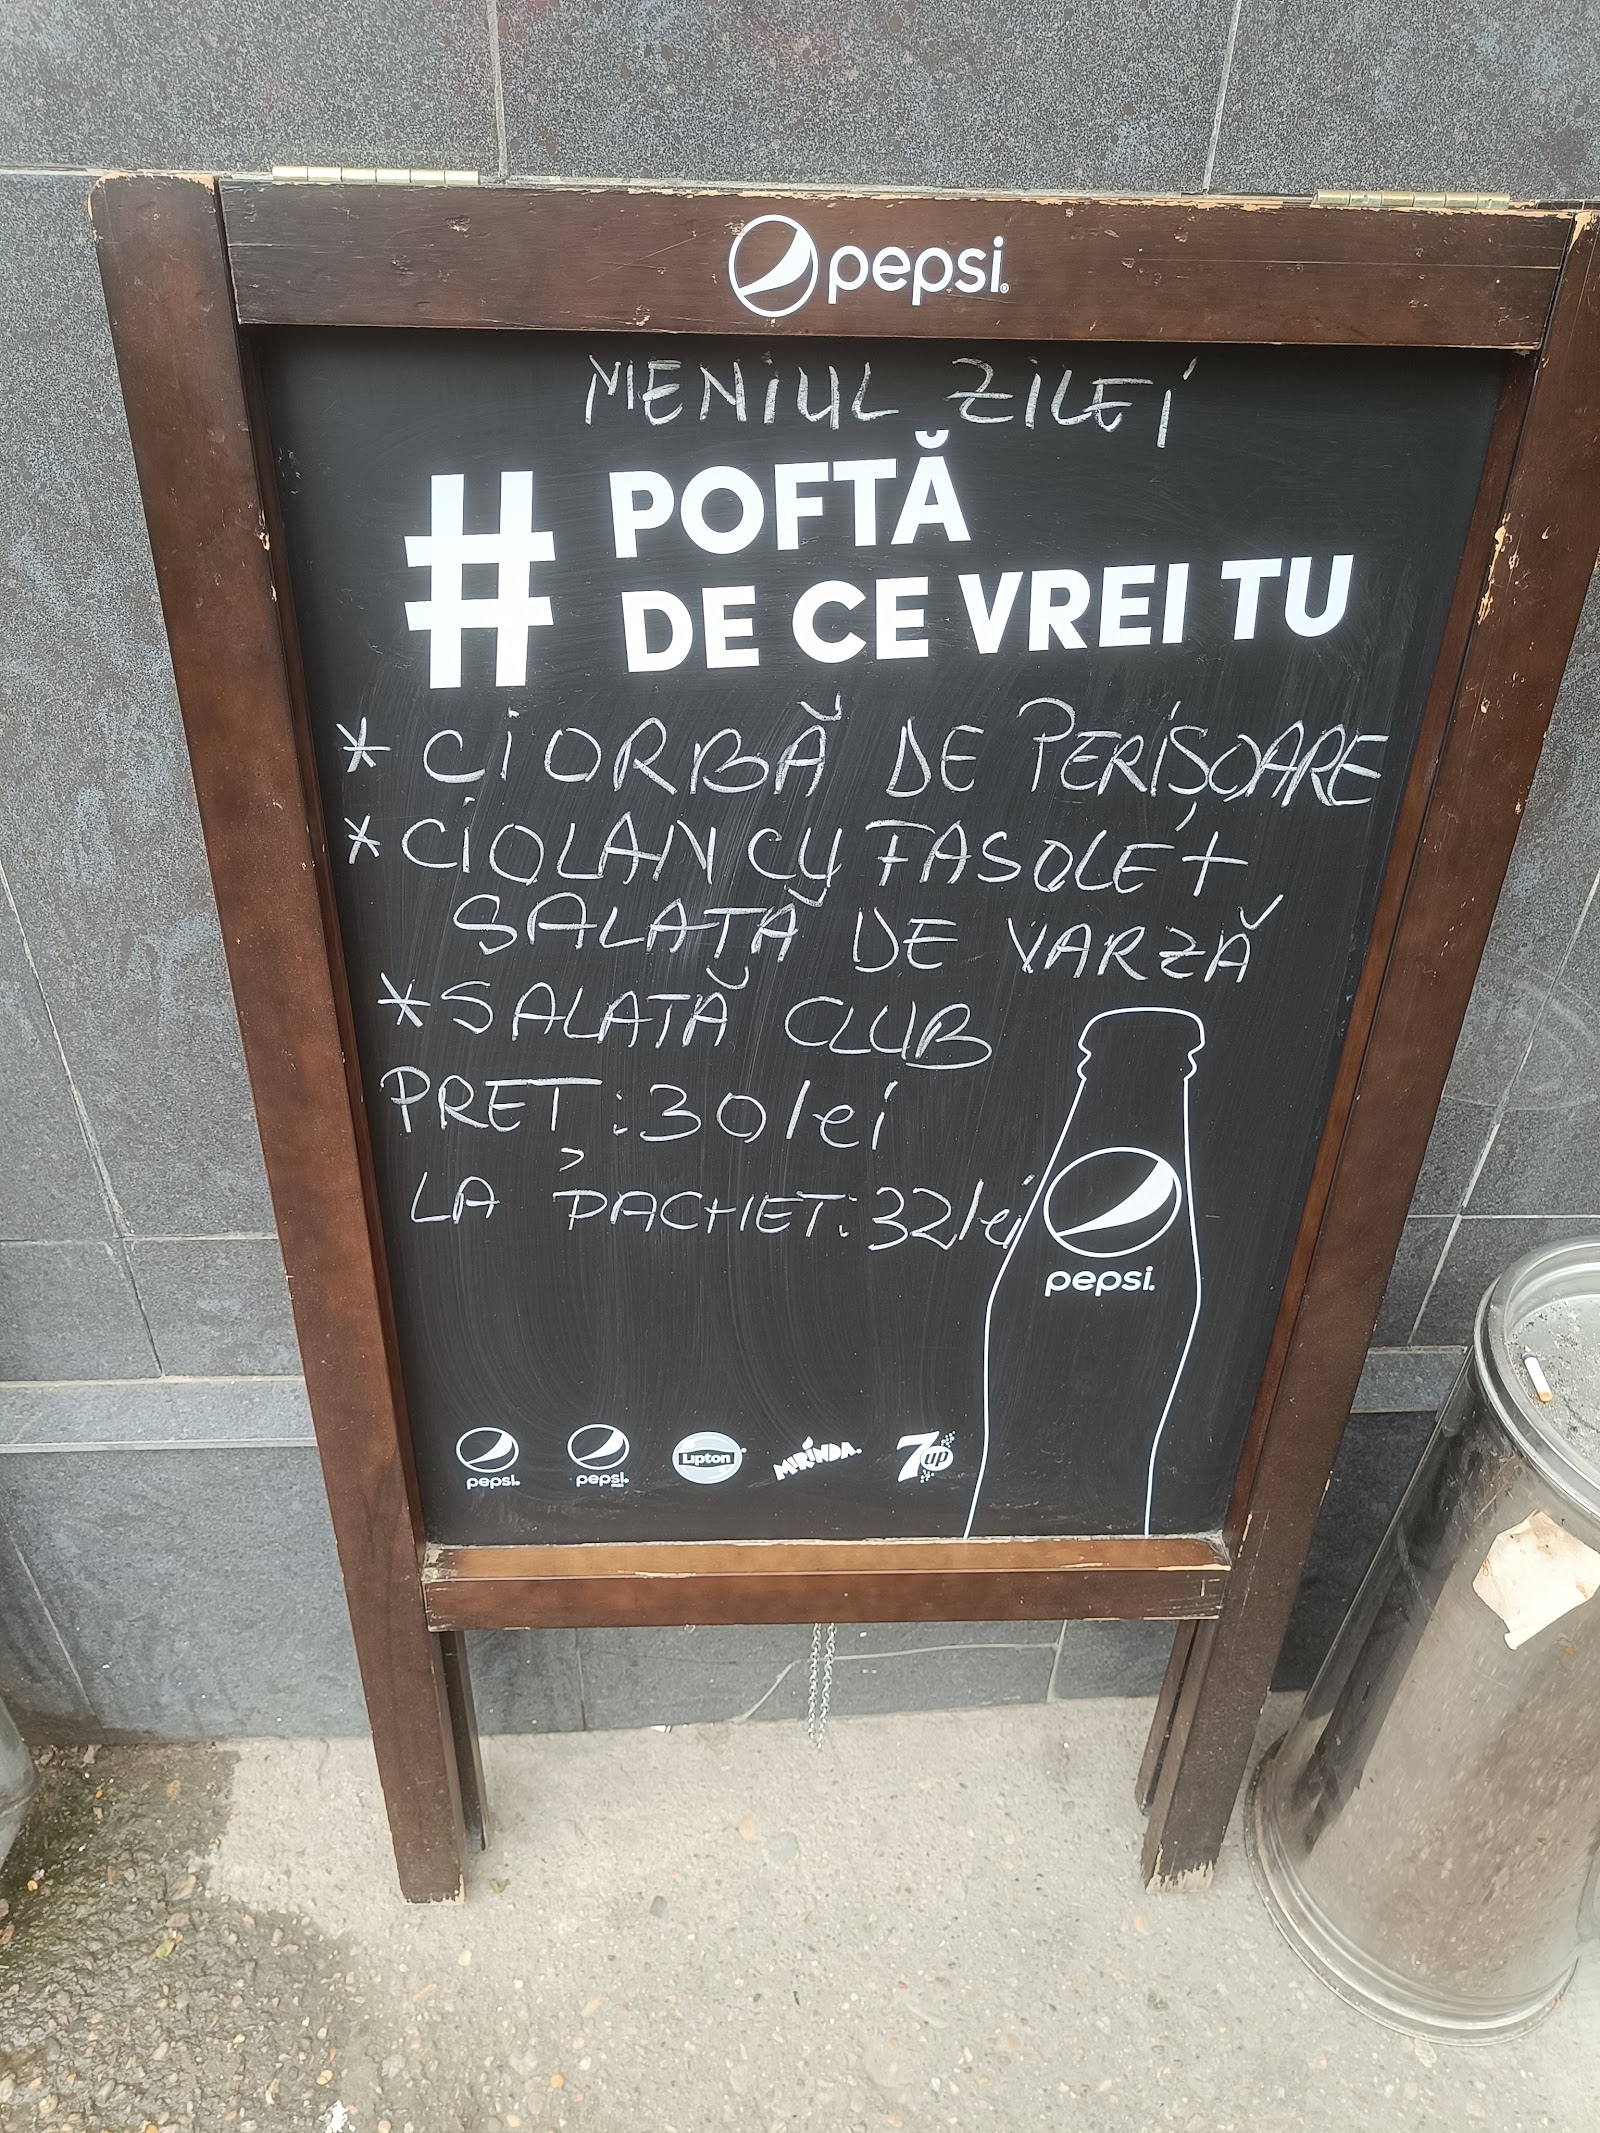 pepsi
MENIUL ZILEI
# POFTĂ
DE CE VREI TU
* CIORBĂ DE PERIȘOARE
* CIOLAN CU FASOLE +
SALATĂ DE VARZĂ
* SALATĂ CLUB
PREȚ : 30 lei
LA PACHET: 32 lei
pepsi.
pepsi. pepsi. Lipton MIRINDA. 7up